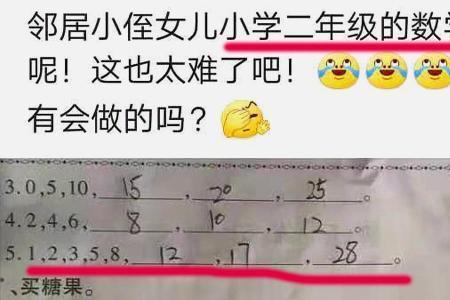 邻居小侄女儿小学二年级的数学
呢！这也太难了吧！😂😂😂
有会做的吗？🤦
3.0,5,10, 15 , 20 , 25 。
4.2,4,6, 8 , 10 , 12 。
5.1,2,3,5,8, 12 , 17 , 28 。
、买糖果。